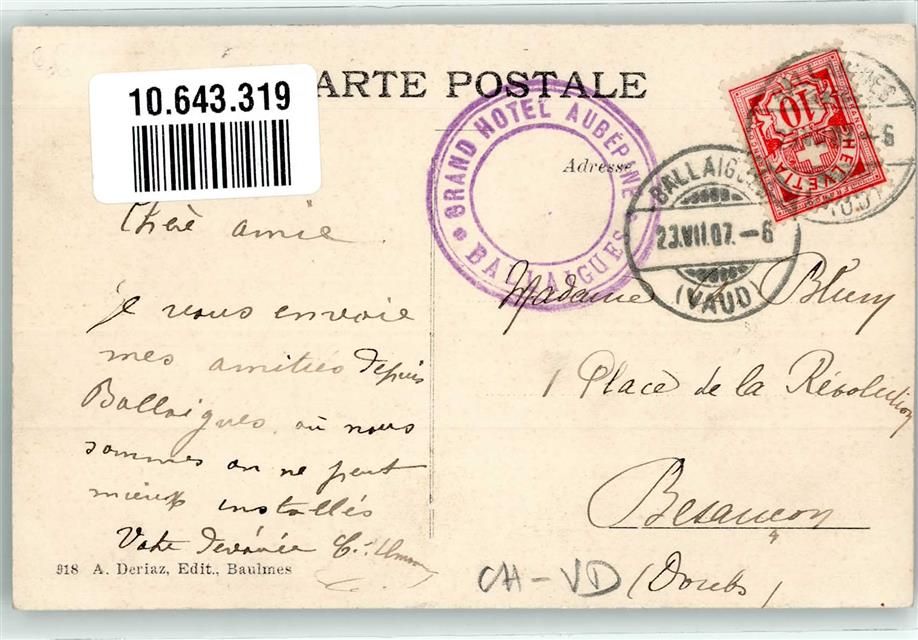 10.643.319
CARTE POSTALE
GRAND HOTEL AUBÉPINE
BALLAIGUES
Adresse
10
HELVETIA
BALLAIGUES
23.VII.07.-6
(VAUD)
Chère amie
je vous envoie
mes amitiés depuis
Ballaigues où nous
sommes on ne peut
mieux installés
Votre dévouée
Madame Blum
1 Place de la Révolution
Besançon
(Doubs)
918 A. Deriaz, Edit., Baulmes
CH-VD